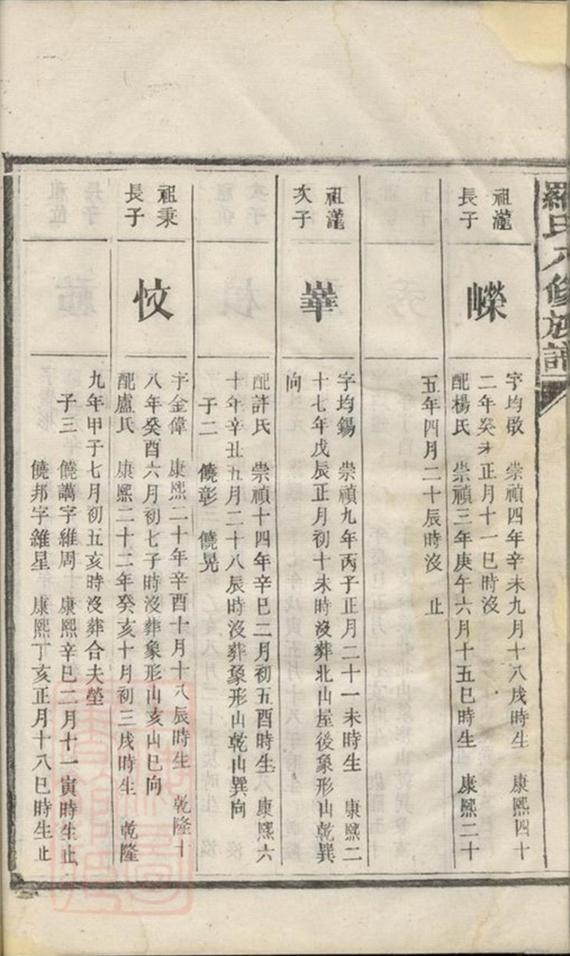 羅氏八修族譜
祖瀧
長子
嶸
字均敬 崇禎四年辛未九月十八戌時生 康熙四十
二年癸未正月十一巳時沒
配楊氏 崇禎三年庚午六月十五巳時生 康熙二十
五年四月二十辰時沒 止
祖瀧
次子
崋
字均錫 崇禎九年丙子正月二十一未時生 康熙二
十七年戊辰正月初十未時沒葬北山屋後象形山乾巽
向
配許氏 崇禎十四年辛巳二月初五酉時生 康熙六
十年辛丑五月二十八辰時沒葬象形山乾山巽向
子二 饒彰 饒晃
祖秉
長子
忟
字金偉 康熙二十年辛酉十月十八辰時生 乾隆十
八年癸酉六月初七子時沒葬象形山亥山巳向
配盧氏 康熙二十二年癸亥十月初三戌時生 乾隆
九年甲子七月初五亥時沒葬合夫塋
子三 饒譪字維周 康熙辛巳二月十一寅時生止
饒邦字維星 康熙丁亥正月十八巳時生止